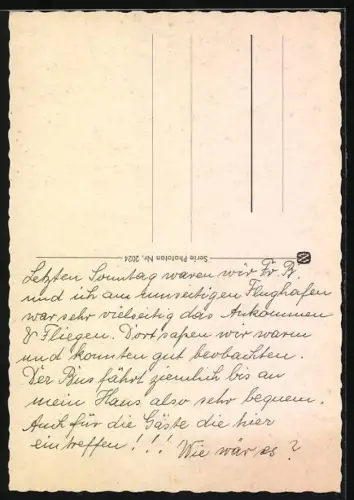 Serie Photofan Nr. 2024
Letzten Sonntag waren wir Fr. B.
und ich am umseitigen Flughafen
war sehr vielseitig das Ankommen
& Fliegen. Dort saßen wir warm
und konnten gut beobachten.
Der Bus fährt ziemlich bis an
mein Haus also sehr bequem.
Auch für die Gäste die hier
eintreffen!!! Wie wär es?